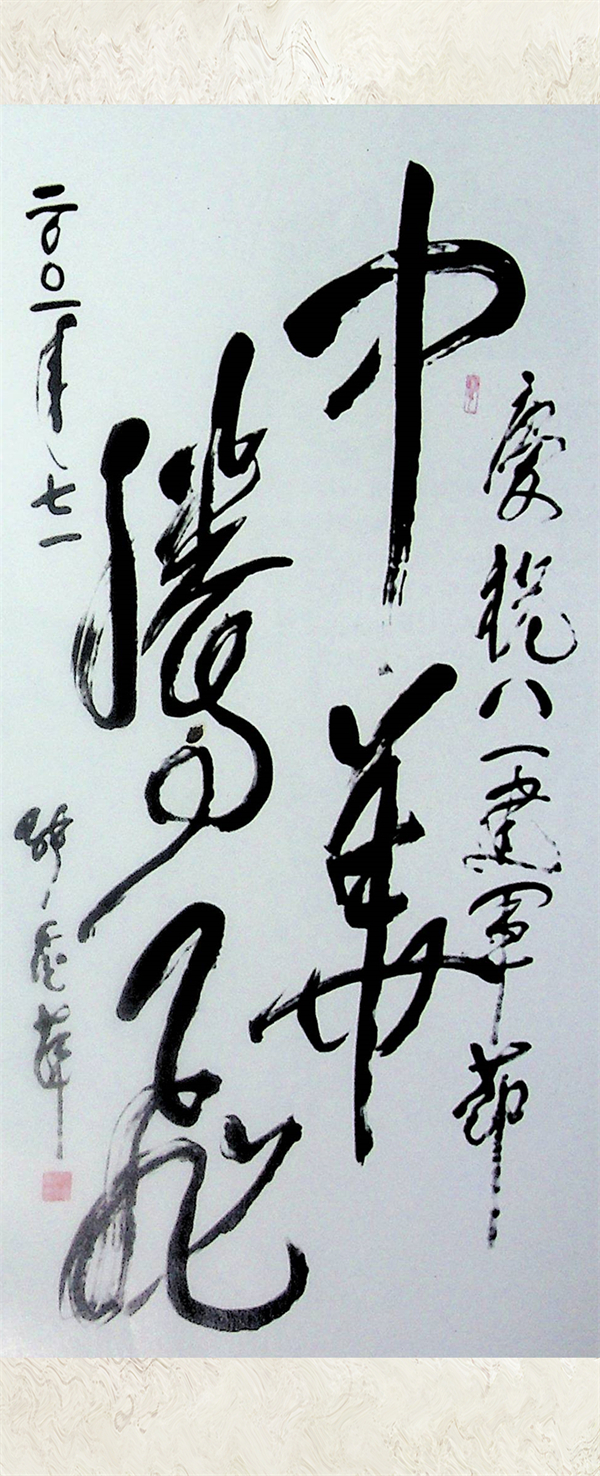 慶祝八一建軍節
中華
騰飛
二〇〇一年、七一